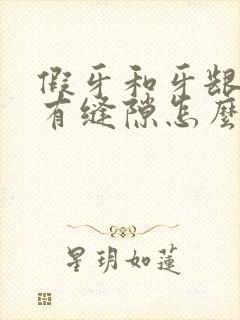 假牙和牙龈
有缝隙怎麽
星玥如莲